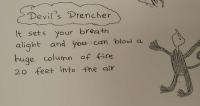 "Devil's Drencher"
It sets your breath
alight and you can blow a
huge column of fire
20 feet into the air